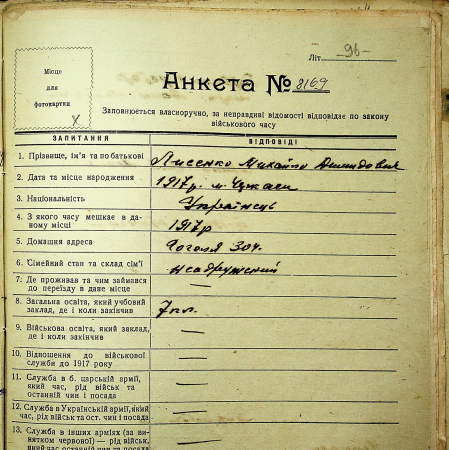 Літ. 96
Місце
для
фотокартки
Анкета № 8169
Заповнюється власноручно, за неправдиві відомості відповідає по закону
військового часу
ЗАПИТАННЯ ВІДПОВІДІ
1. Прізвище, ім'я та по батькові Лисенко Михайло
2. Дата та місце народження 1917р. м. Черкаси
3. Національність Українець
4. З якого часу мешкає в да-
ному місці 1917р
5. Домашня адреса Гоголя 304.
6. Сімейний стан та склад сім'ї
7. Де проживав та чим займався
по переїзду в дане місце —
8. Загальна освіта, який учбовий
заклад, де і коли закінчив 7 кл.
9. Військова освіта, який заклад,
де і коли закінчив —
10. Відношення до військової
служби до 1917 року —
11. Служба в б. царській армії,
який час, рід військ та
останній чин і посада —
12. Служба в Українській армії, який
час, рід військ та ост. чин і посада —
13. Служба в інших арміях (за ви-
нятком червоної) — рід військ,
який час останній чин та посада —